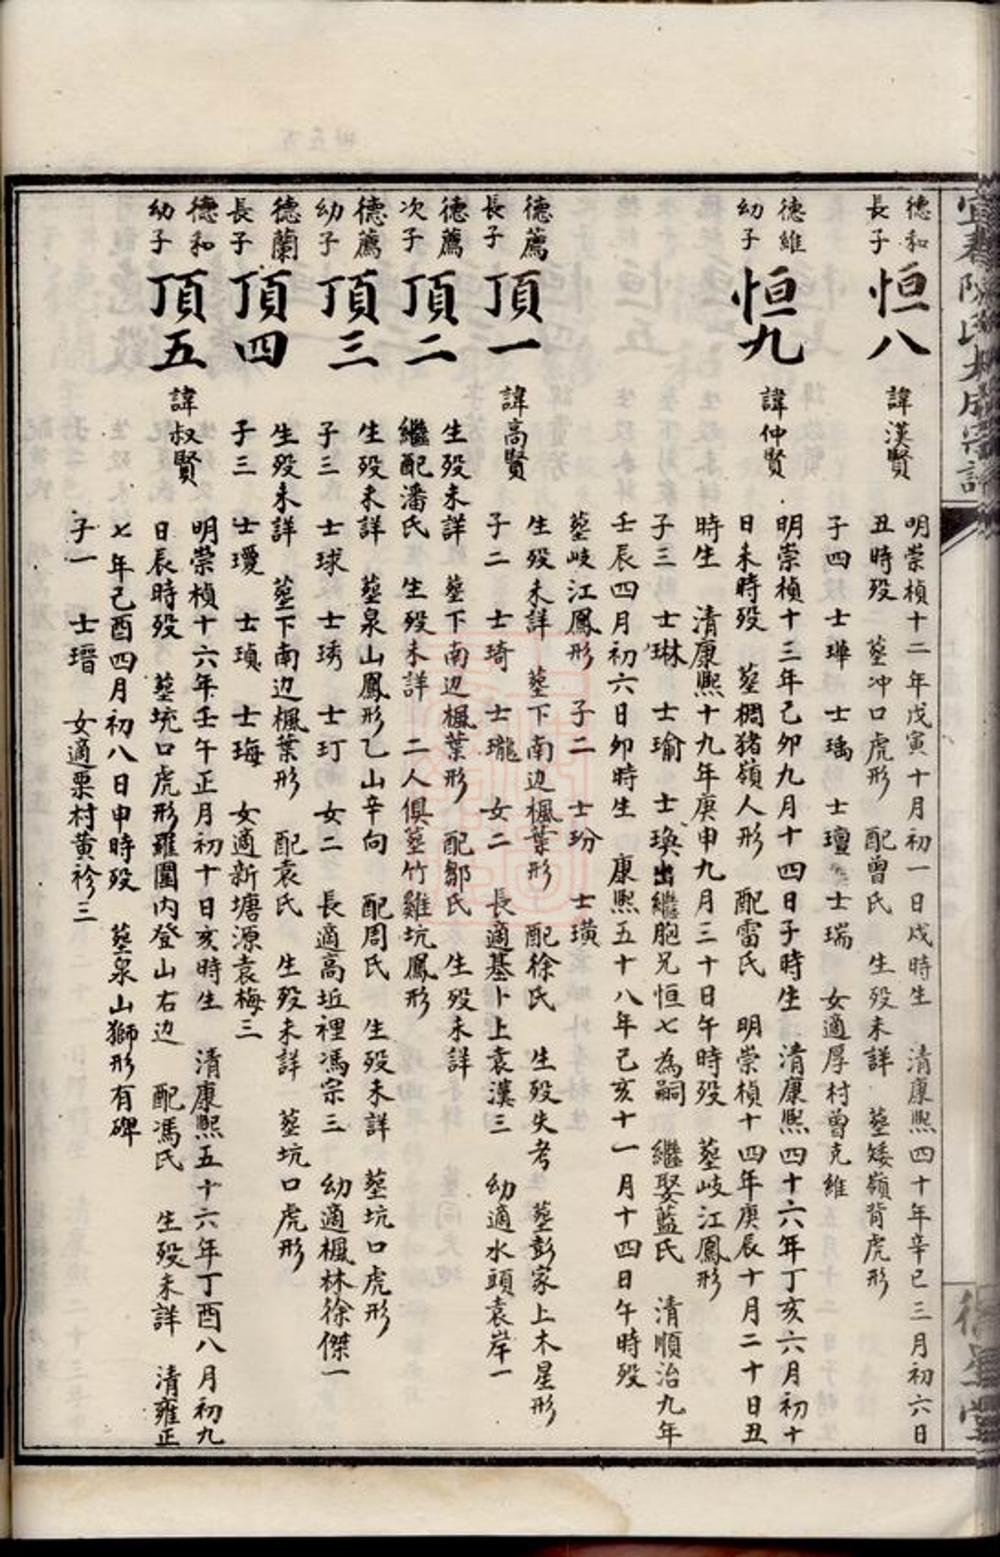 德和
長子
恒八
諱漢賢
明崇禎十二年戊寅十月初一日戌時生　清康熙四十年辛巳三月初六日
丑時殁　墓冲口虎形　配曾氏　生殁未詳　墓矮嶺背虎形
子四　士瑋　士瑀　士璮　士瑞　女適厚村曾克維
德維
幼子
恒九
諱仲賢
明崇禎十三年己卯九月十四日子時生　清康熙四十六年丁亥六月初十
日未時殁　墓椆猪嶺人形　配雷氏　明崇禎十四年庚辰十月二十日丑
時生　清康熙十九年庚申九月三十日午時殁　墓岐江鳳形
子三　士琳　士瑜　士瑍出繼胞兄恒七為嗣　繼娶藍氏　清順治九年
壬辰四月初六日卯時生　康熙五十八年己亥十一月十四日午時殁
墓岐江鳳形　子二　士玢　士璜
德薦
長子
頂一
諱高賢
生殁未詳　墓下南边楓葉形　配徐氏　生殁失考　墓彭家上木星形
子二　士琦　士瓏　女二　長適基卜上袁漢三　幼適水頭袁岸一
德薦
次子
頂二
生殁未詳　墓下南边楓葉形　配鄒氏　生殁未詳
繼配潘氏　生殁未詳　二人俱墓竹雞坑鳳形
德薦
幼子
頂三
生殁未詳　墓泉山鳳形乙山辛向　配周氏　生殁未詳　墓坑口虎形
子三　士球　士琇　士玎　女二　長適高坵裡馮宗三　幼適楓林徐傑一
德蘭
長子
頂四
生殁未詳　墓下南边楓葉形　配袁氏　生殁未詳　墓坑口虎形
子三　士瓊　士瑱　士珻　女適新塘源袁梅三
德和
幼子
頂五
諱叔賢
明崇禎十六年壬午正月初十日亥時生　清康熙五十六年丁酉八月初九
日辰時殁　墓坑口虎形羅圍内登山右边　配馮氏　生殁未詳　清雍正
七年己酉四月初八日申時殁　墓泉山獅形有碑
子一　士瑨　女適栗村黄衫三